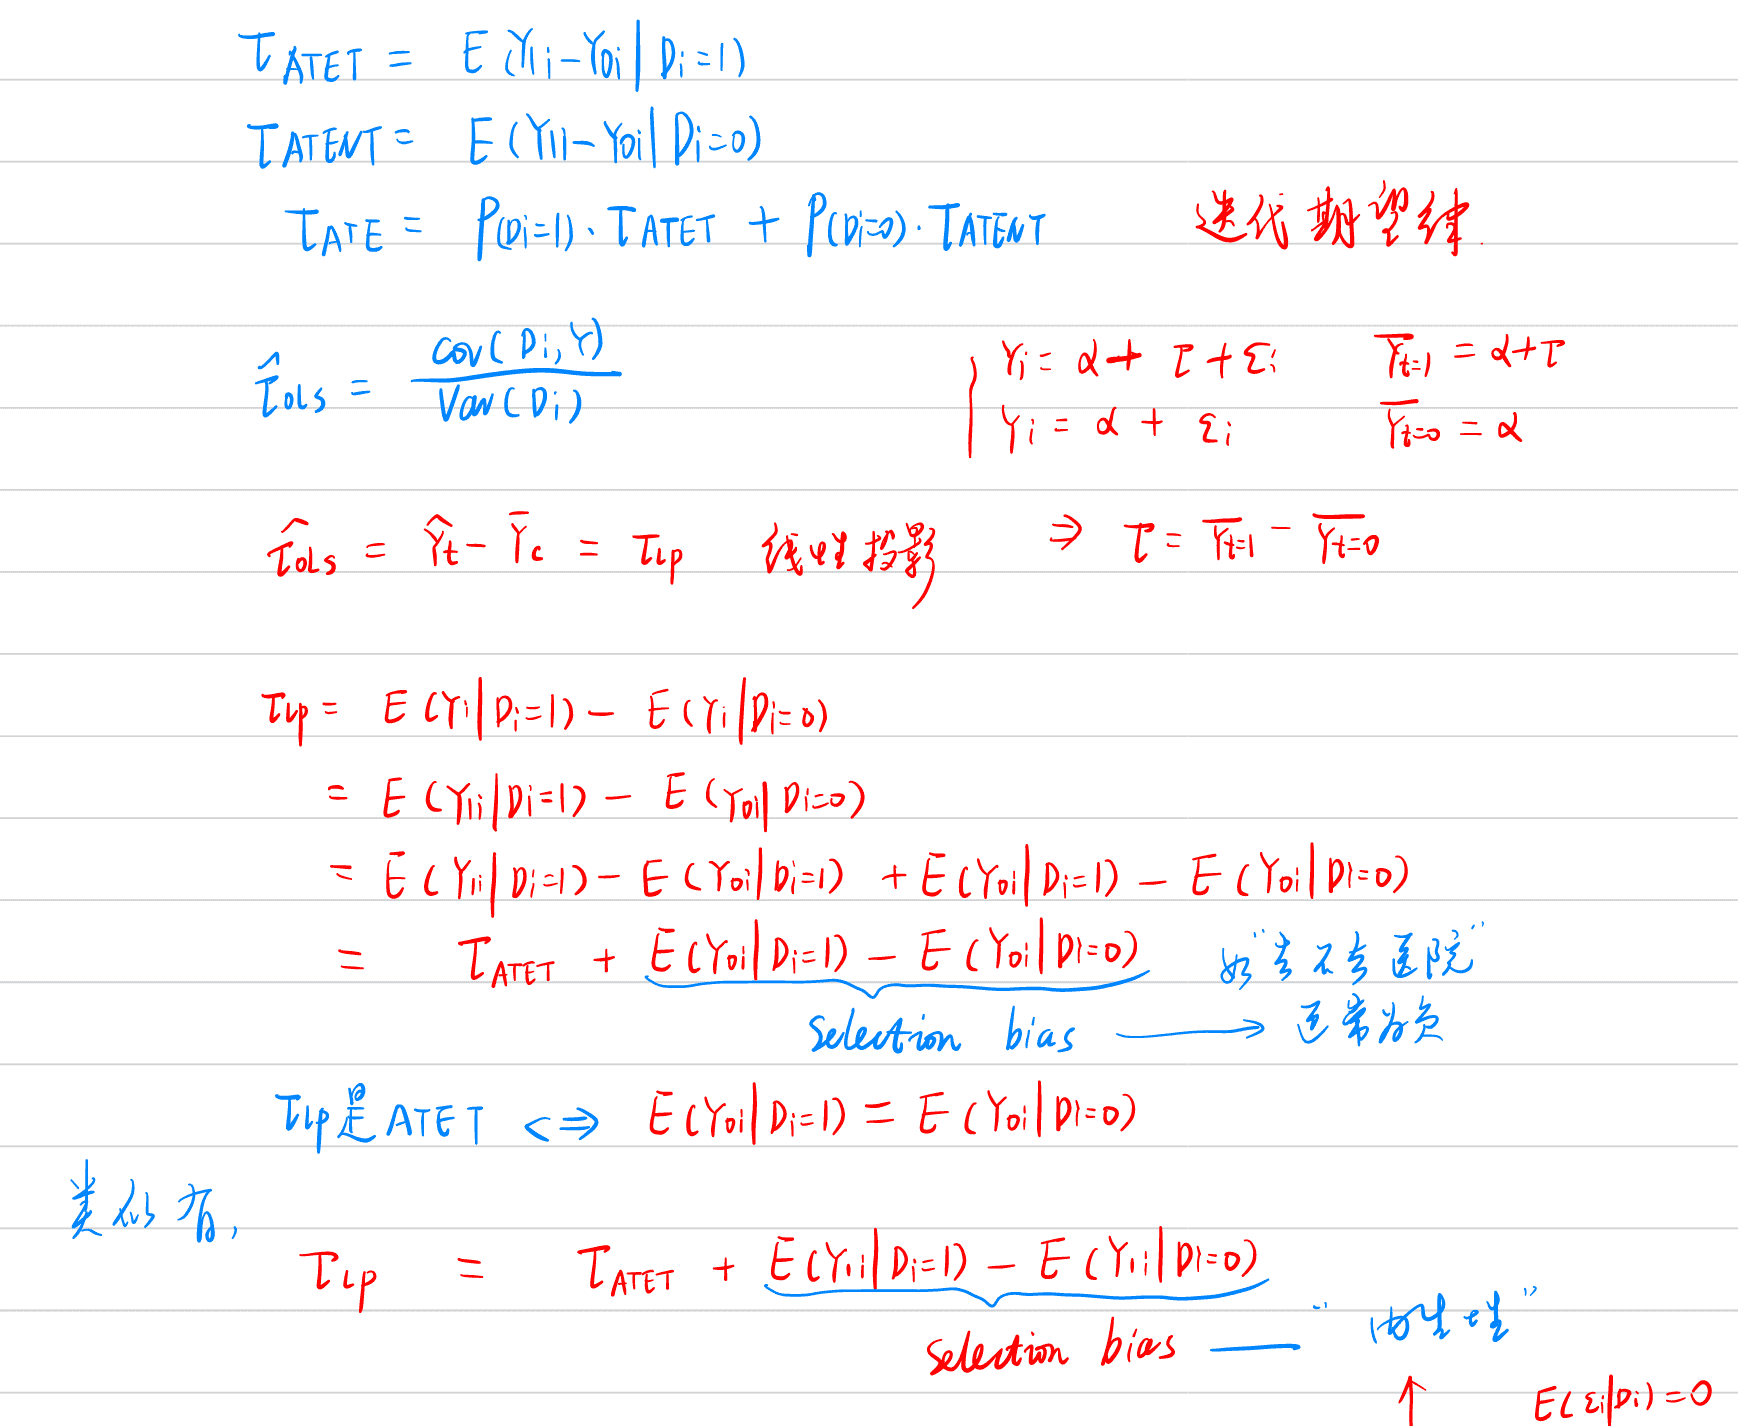 τ_ATET = E(Y₁ᵢ-Y₀ᵢ|Dᵢ=1)
τ_ATENT = E(Y₁ᵢ-Y₀ᵢ|Dᵢ=0)
τ_ATE = P(Dᵢ=1)·τ_ATET + P(Dᵢ=0)·τ_ATENT 迭代期望律.
τ̂_OLS = cov(Dᵢ,Y) / Var(Dᵢ)
Yᵢ = α + τ + εᵢ Ȳ_t=1 = α+τ
Yᵢ = α + εᵢ Ȳ_t=0 = α
τ̂_OLS = Ŷ_t - Ȳ_c = τ_LP 线性投影 ⇒ τ = Ȳ_t=1 - Ȳ_t=0
τ_LP = E(Yᵢ|Dᵢ=1) - E(Yᵢ|Dᵢ=0)
= E(Y₁ᵢ|Dᵢ=1) - E(Y₀ᵢ|Dᵢ=0)
= E(Y₁ᵢ|Dᵢ=1) - E(Y₀ᵢ|Dᵢ=1) + E(Y₀ᵢ|Dᵢ=1) - E(Y₀ᵢ|Dᵢ=0)
= τ_ATET + E(Y₀ᵢ|Dᵢ=1) - E(Y₀ᵢ|Dᵢ=0) 如"去不去医院"
Selection bias → 通常为负
τ_LP是ATET <=> E(Y₀ᵢ|Dᵢ=1) = E(Y₀ᵢ|Dᵢ=0)
类似有,
τ_LP = τ_ATET + E(Y₁ᵢ|Dᵢ=1) - E(Y₁ᵢ|Dᵢ=0)
Selection bias — "内生性"
↑ E(εᵢ|Dᵢ)=0